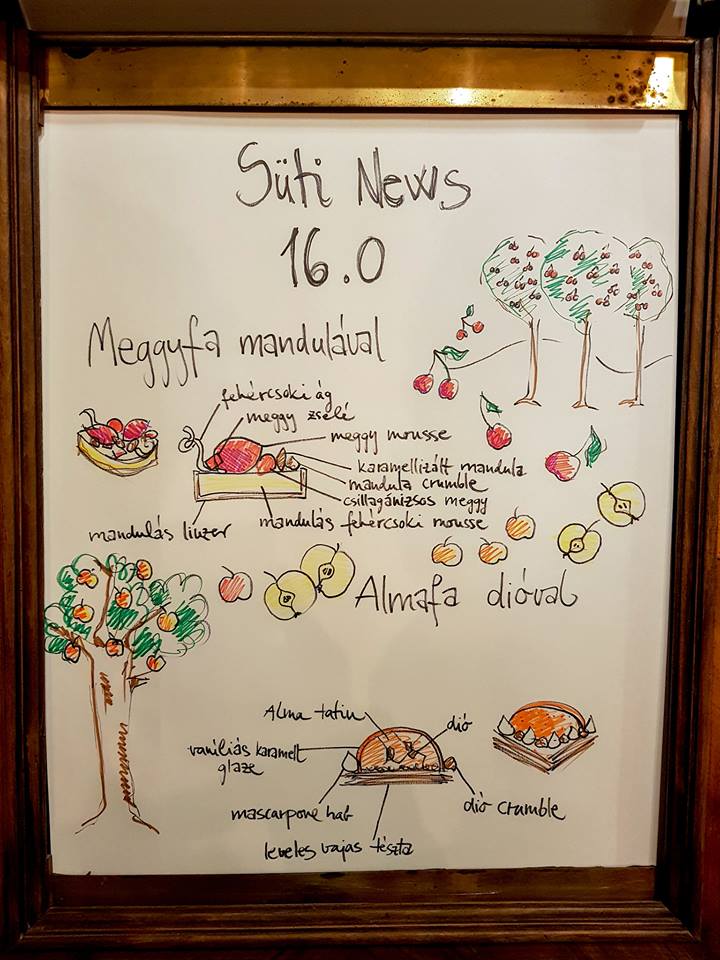 Süti News
16.0
Meggyfa mandulával
fehércsoki ág
meggy zselé
meggy mousse
karamellizált mandula
mandula crumble
csillagánizsos meggy
mandulás fehércsoki mousse
mandulás linzer
Almafa dióval
Alma tatin
dió
vaníliás karamell
glaze
mascarpone hab
dió crumble
leveles vajas tészta